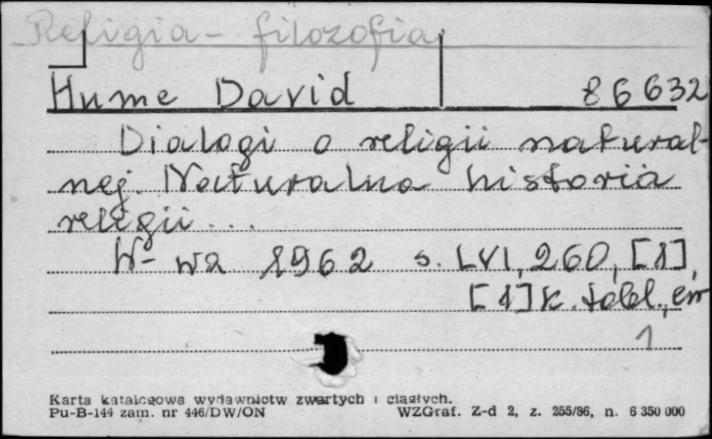 Religia - filozofia
Hume David 86632
Dialogi o religii natural-
nej. Naturalna historia
religii ...
W-wa 1962 s. LVI, 260, [1],
[1] k. tabl., err
1
Karta katalogowa wydawnictw zwartych i ciągłych.
Pu-B-144 zam. nr 446/DW/ON WZGraf. Z-d 2, z. 255/86, n. 6 350 000